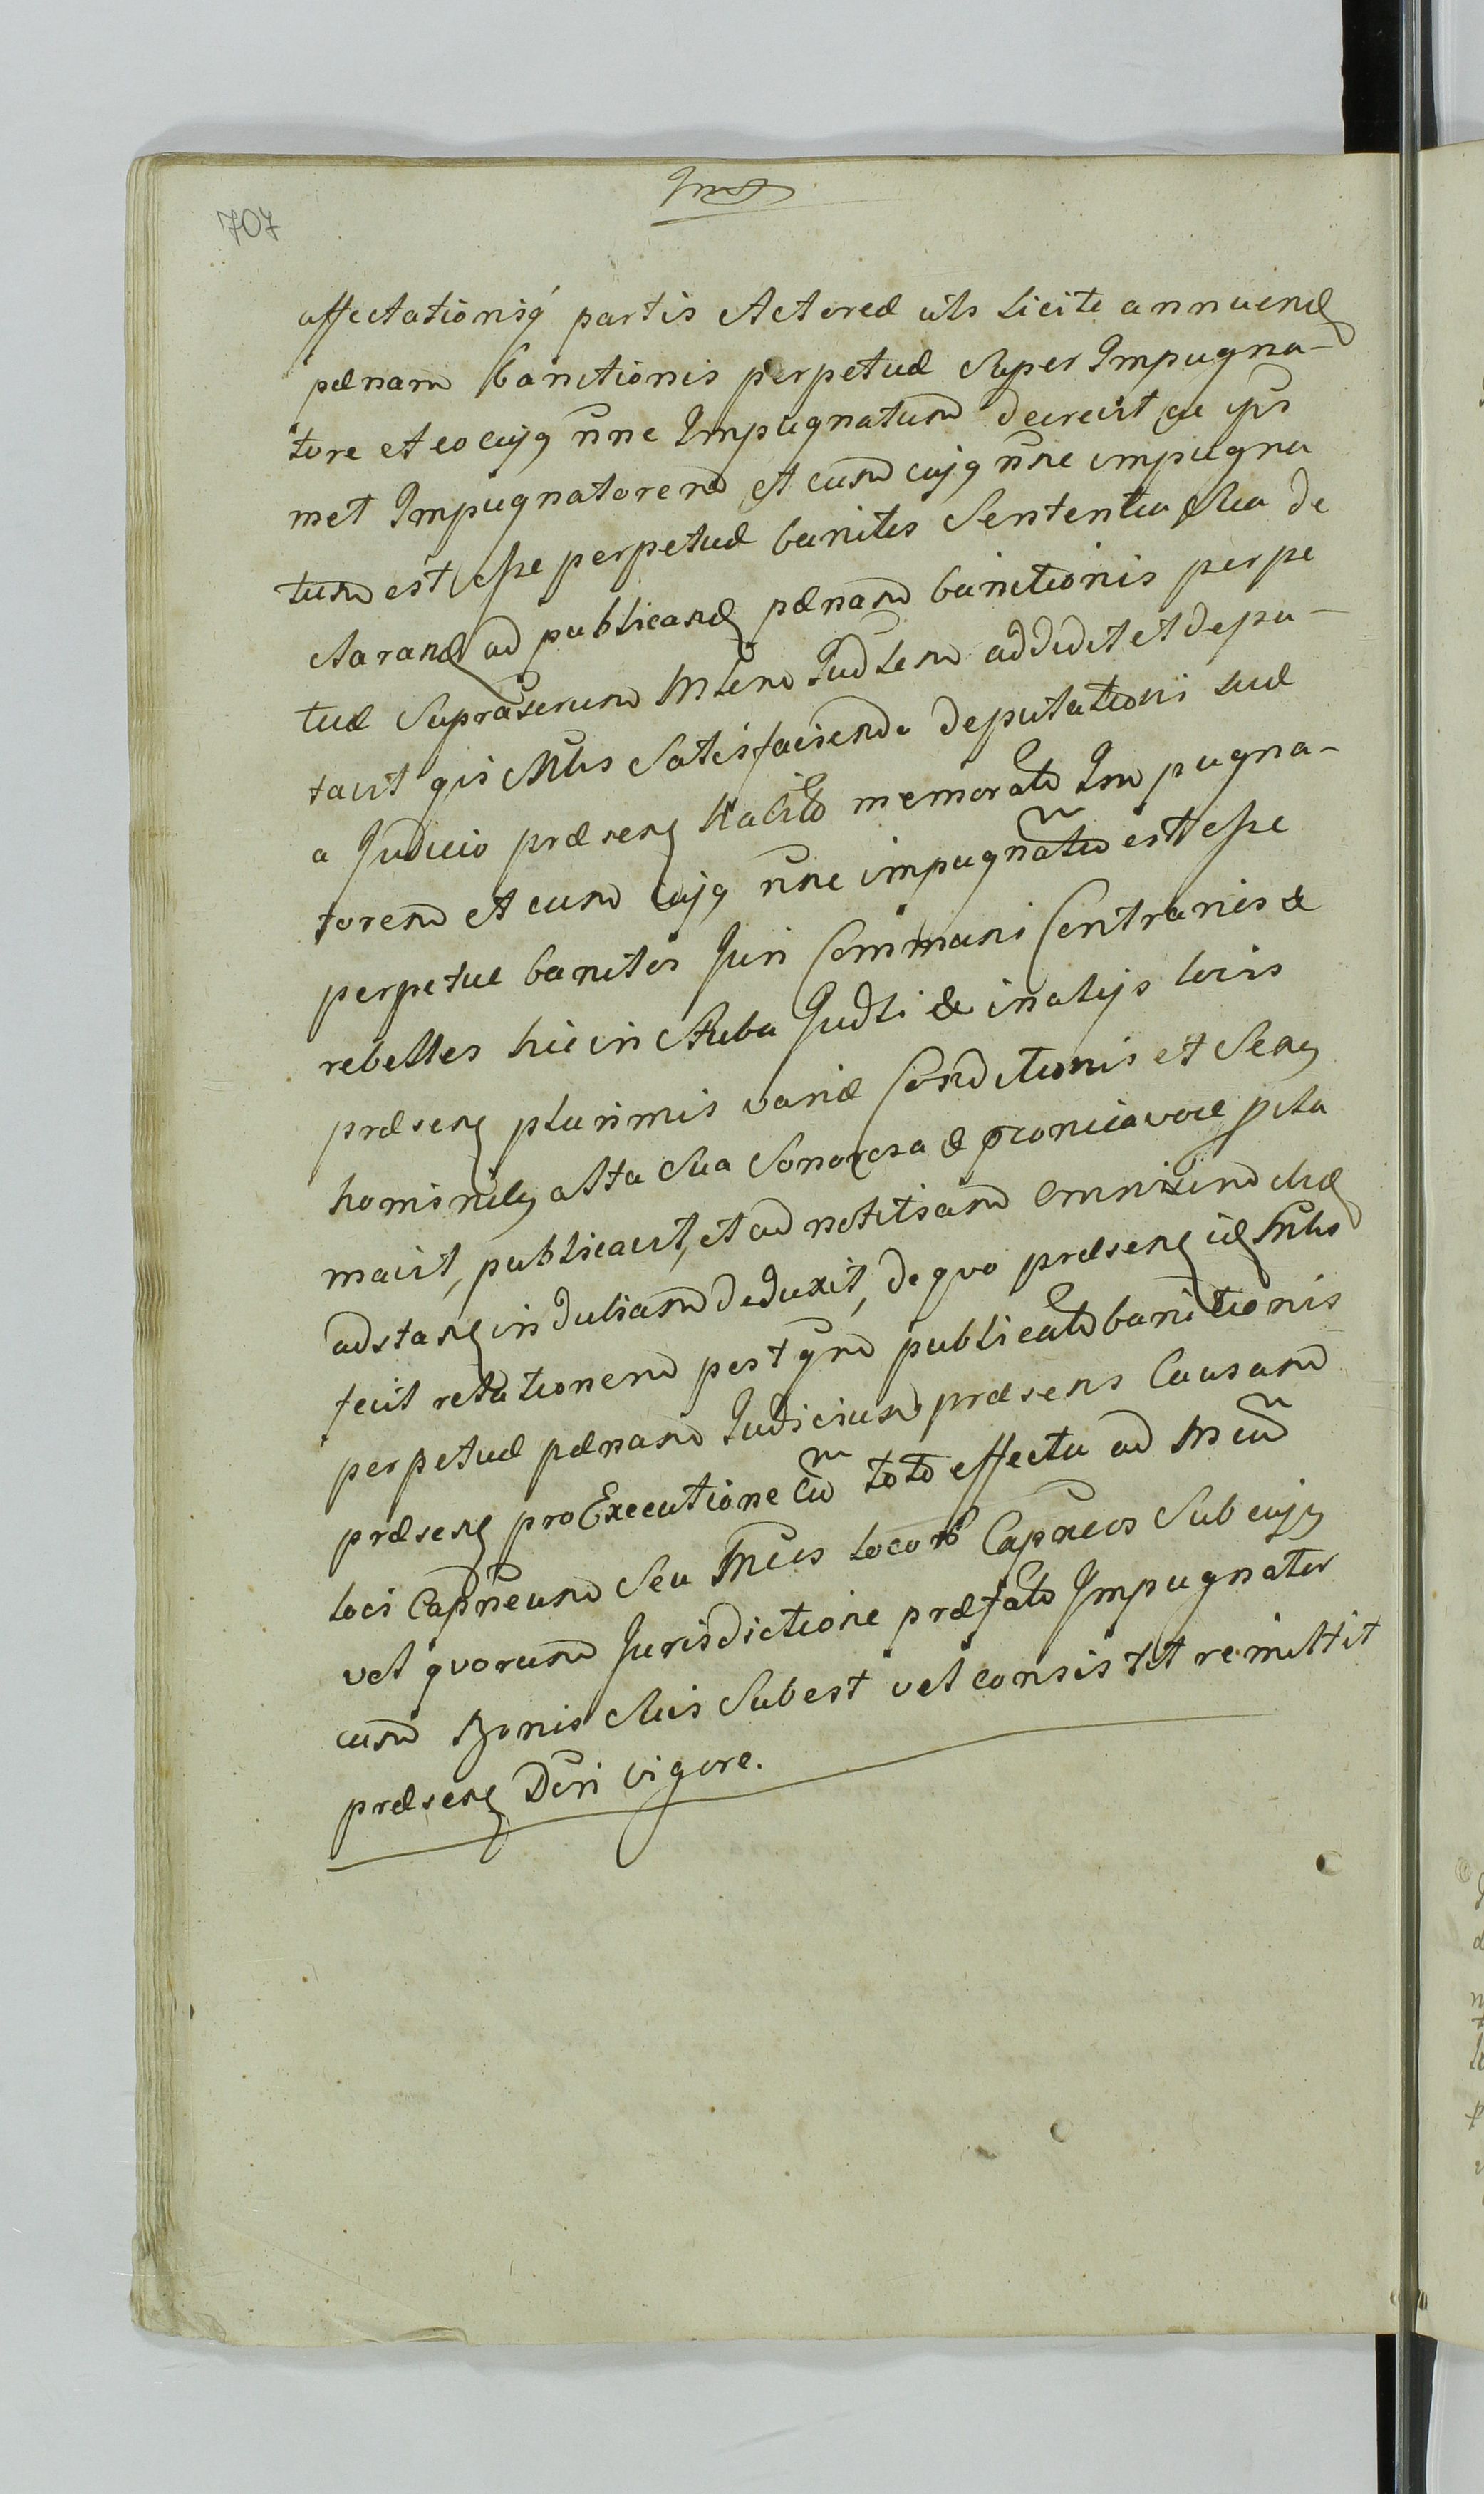 707
affectationisq́ partis Actoreæ uts licite annuend
pænam banitionis perpetuæ super Impugna-
tore et eo cujq nne Impugnatum decrevit ac ips
met Impugnatorem et eum cujq nne impugna
tum est esse perpetuæ banitos Sententia sua de
clarand ad publicand pænam banitionis perpe
tuæ Suprascrum Mlem Judlem addidit et depu-
tavit qis Mlis satisfaciendo deputationi suæ
a Judicio præsen habito memorato Impugna-
torem et eum cujq nne impugnatu est esse
perpetue banitos Juri Communi Contrarios &
rebelles hic in Stuba Judli & in alijs locis
præsen plurimis variæ Conditionis et sexq
hominibq alta sua sonorosa & præconica voce pcla
mavit, publicavit, et ad notitiam omnium circa
adstan in dubiam deduxit, de quo præsen id Mlis
fecit relationem post qm publicato banitionis
perpetuæ pænam Judicium præsens Causam
præsen pro Executione cu toto effectu ad Mcum
loci Capneum seu Mcos locorum Capneos sub cujq
vel quorum Jurisdictione præfato Impugnator
cum bonis suis subest vel consistet remittit
præsen Dcri vigore.